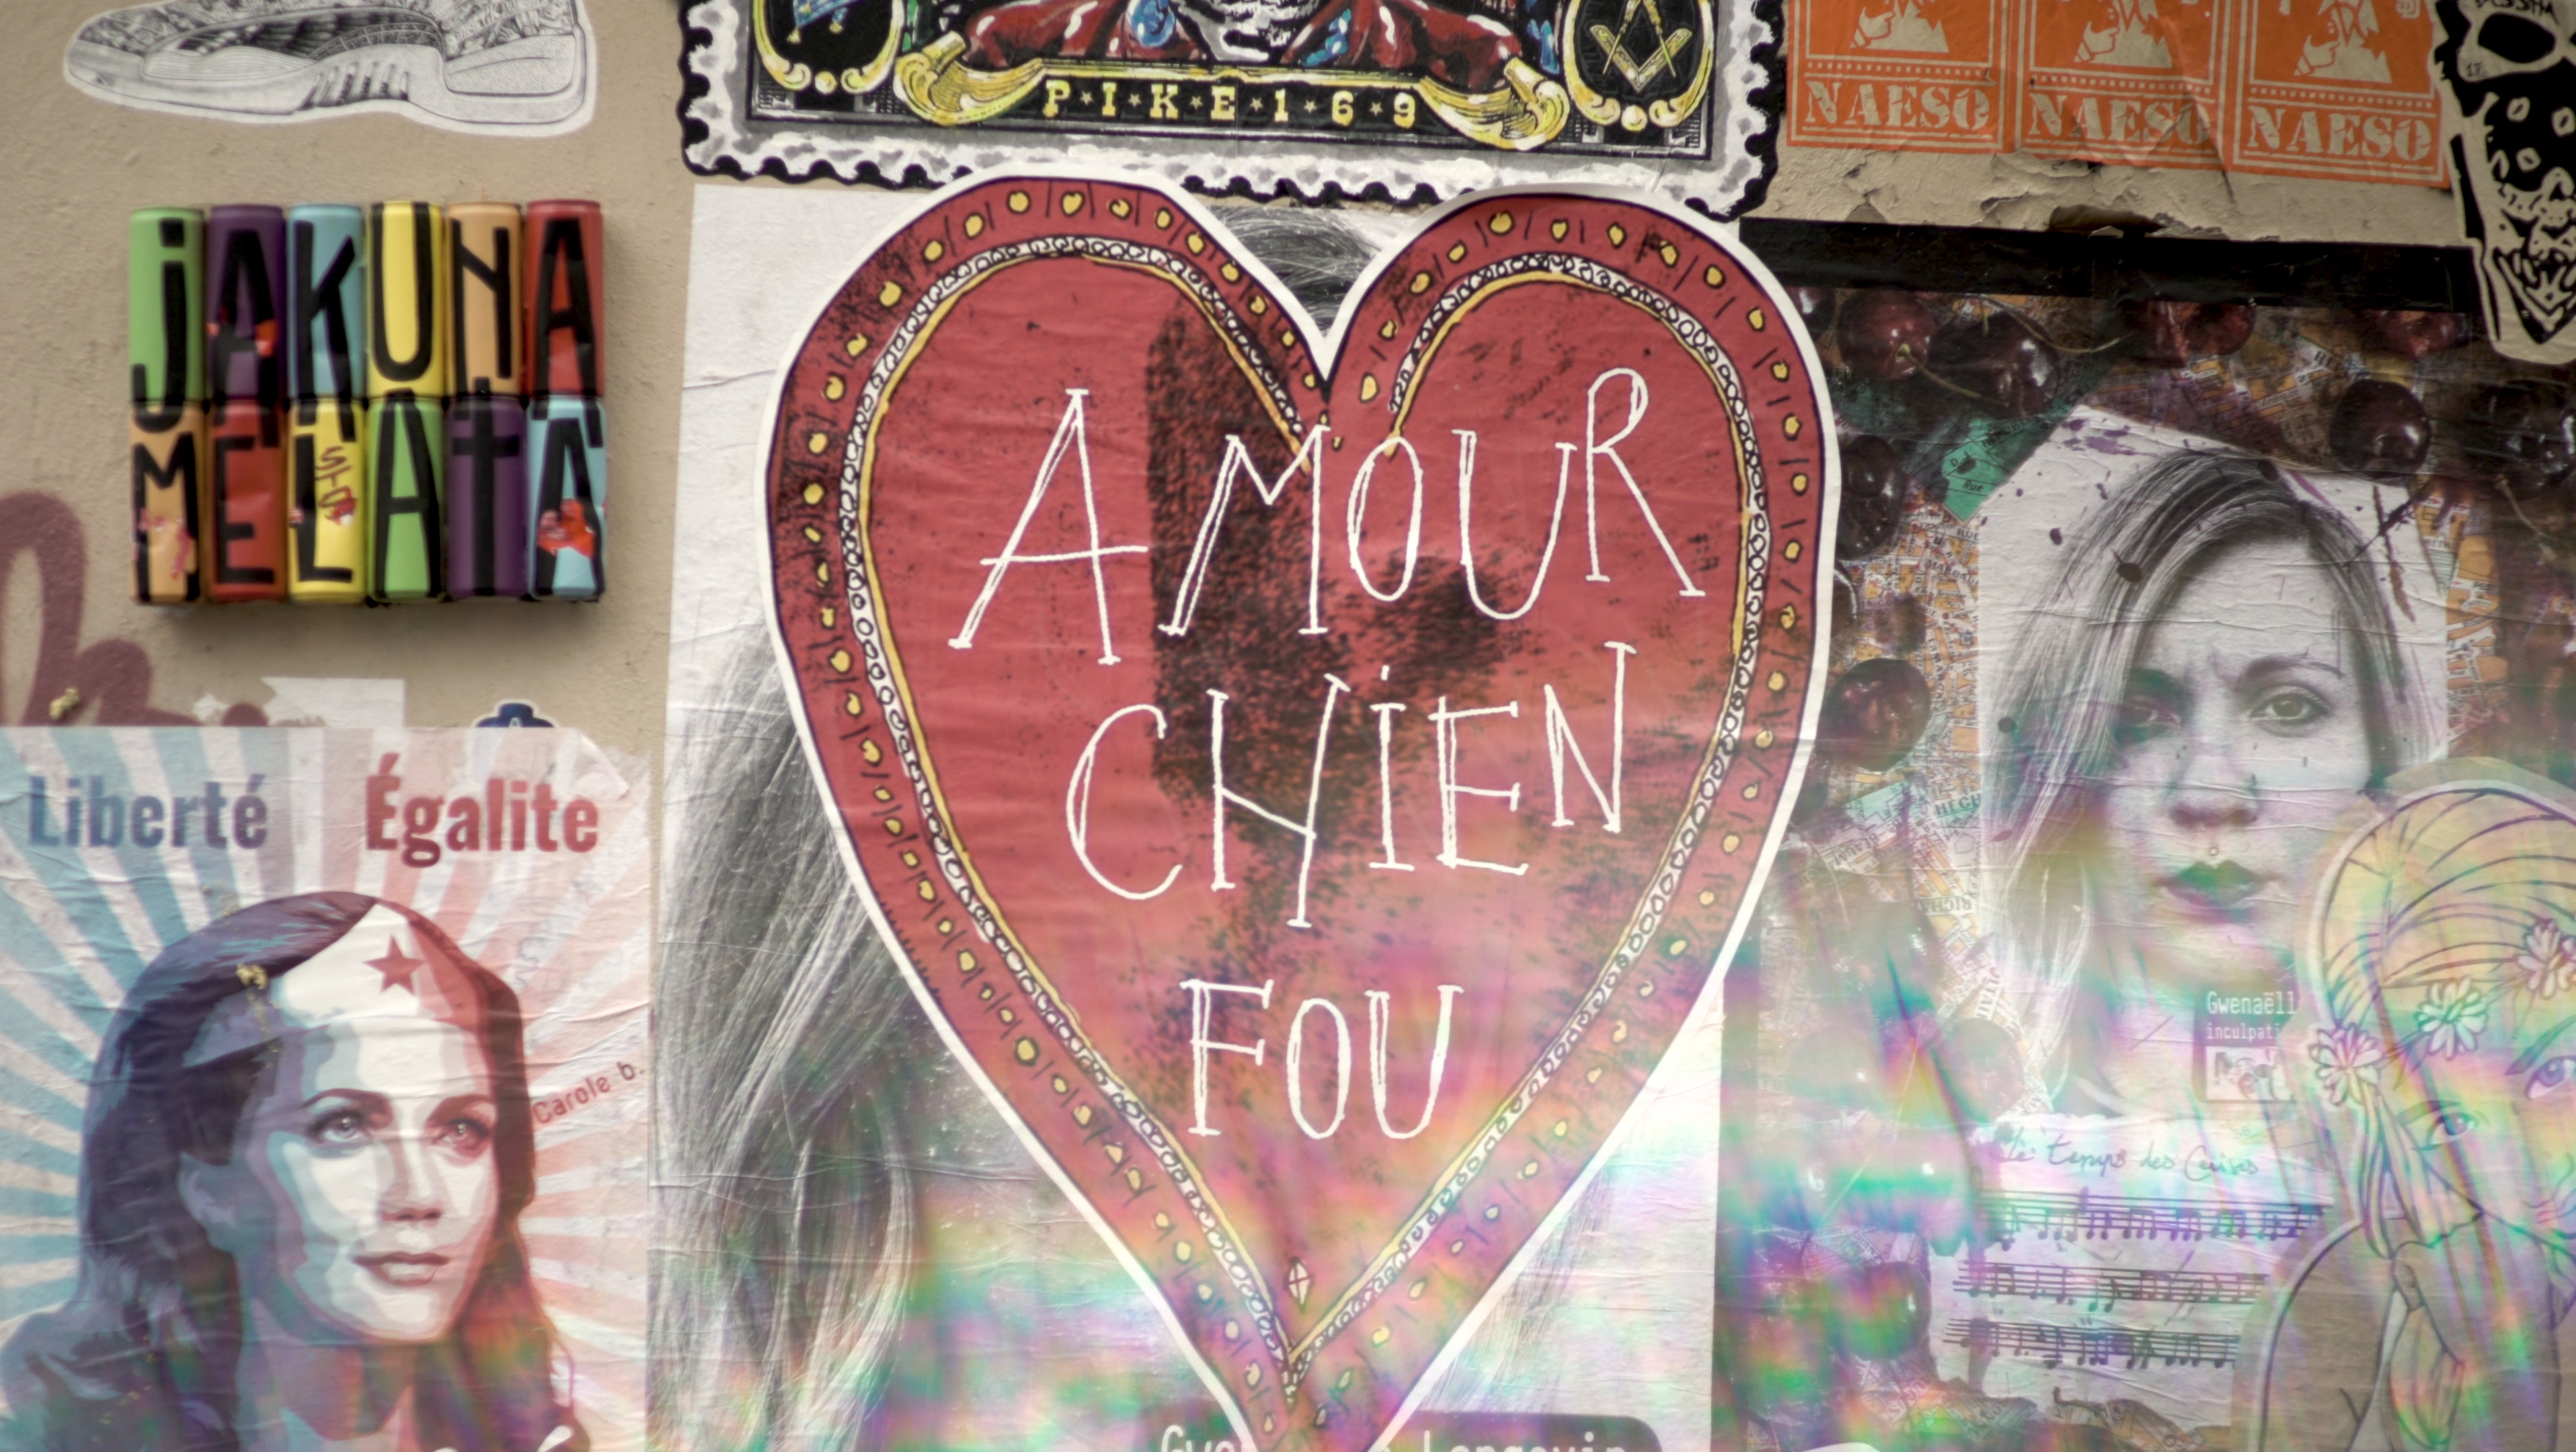 P★I★K★E★1★6★9
NAESO
NAESO
NAESO
JAKUNA
MELATA
AMOUR
CHIEN
FOU
Liberté Égalite
Carole b.
Gwenaëll
inculpati
le temps des Cerises